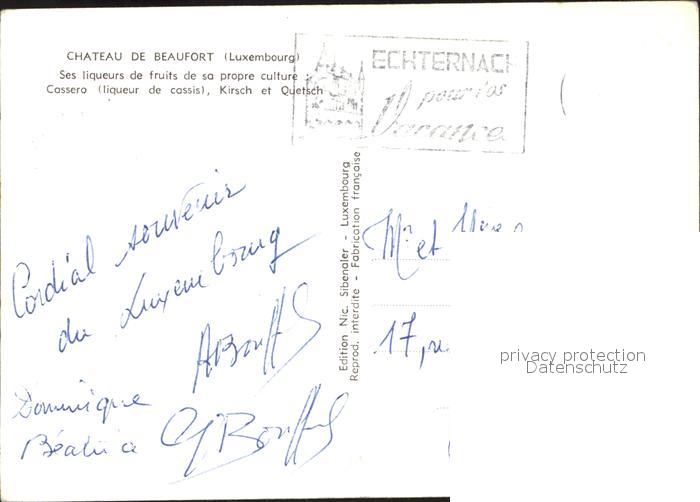 CHATEAU DE BEAUFORT (Luxembourg)
Ses liqueurs de fruits de sa propre culture :
Cassero (liqueur de cassis), Kirsch et Quetsch
ECHTERNACH
pour vos
Vacances
Cordial souvenir
du Luxembourg
Dominique
Béatrice
Edition Nic. Sibenaler - Luxembourg
Reprod. interdite - Fabrication française
Mr et Mme
17, ru
privacy protection
Datenschutz